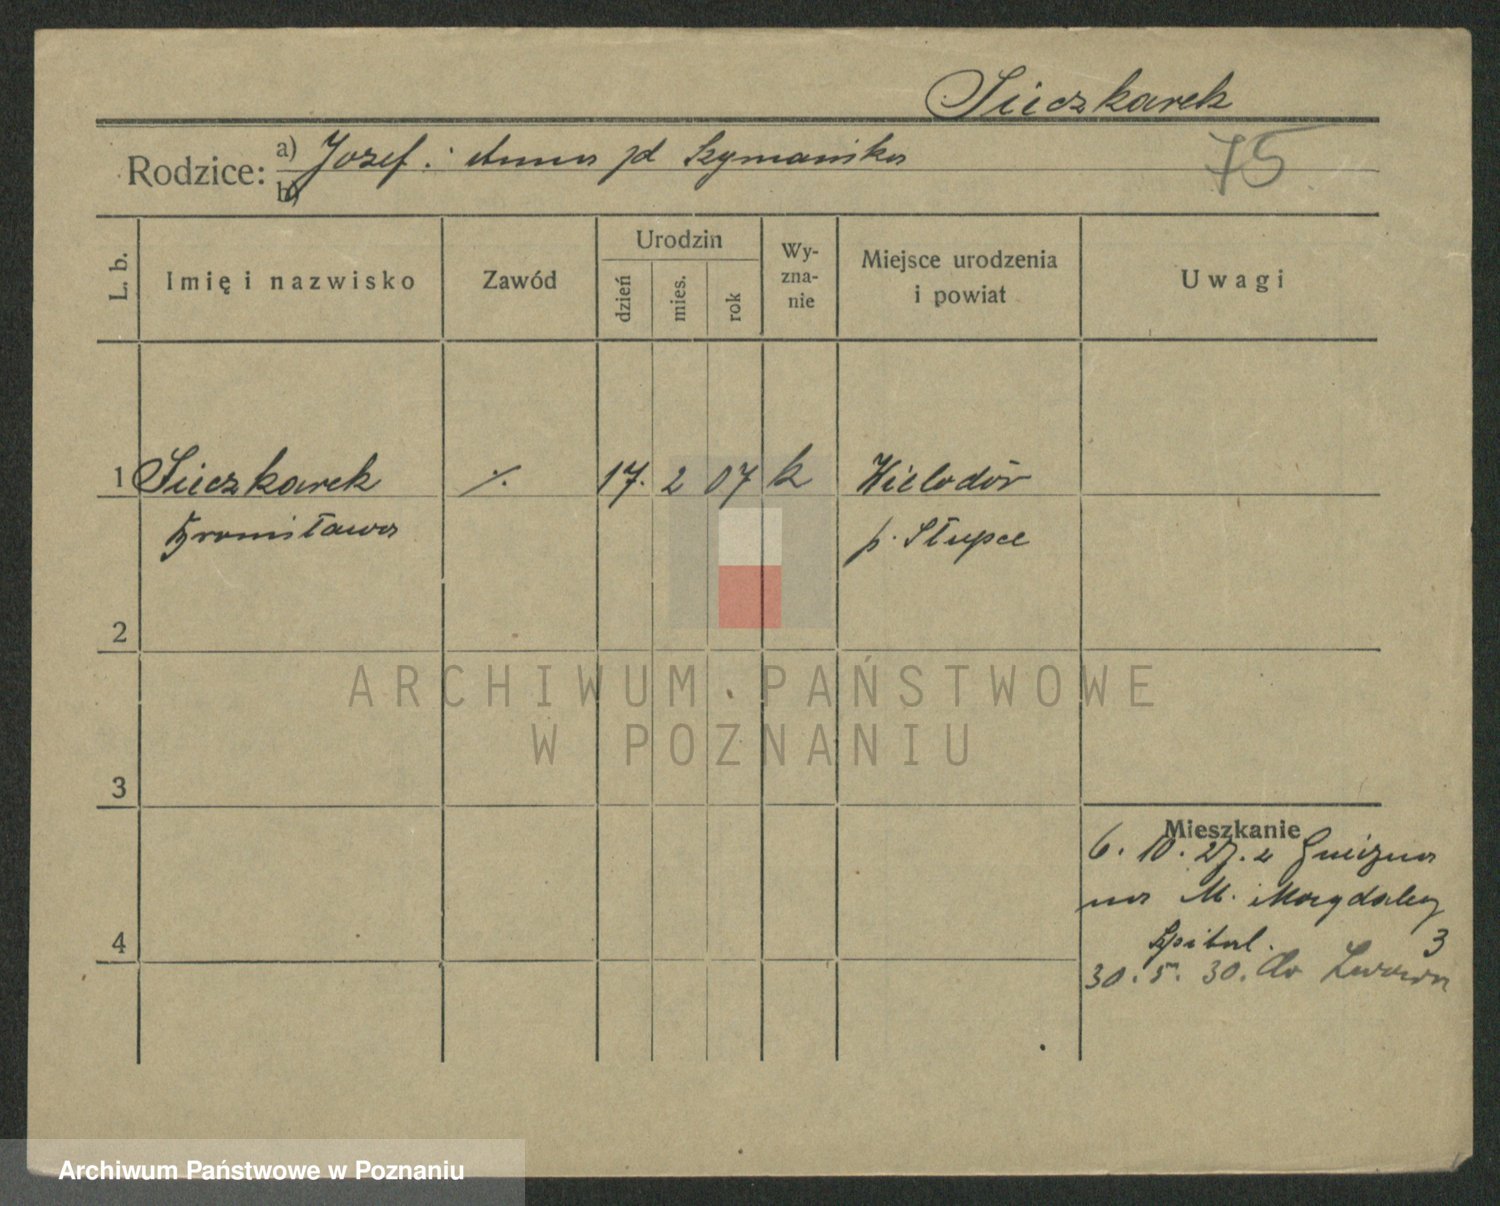 Sieczkarek
Rodzice: a) Józef : Anna zd Szymańska
b)
75
L. b.
Imię i nazwisko
Zawód
Urodzin
dzień
mies.
rok
Wy-
zna-
nie
Miejsce urodzenia
i powiat
Uwagi
1 Sieczkarek ·/. 17. 2 07 k Wielodór
Bronisława p. Słupce
2
3
4
Mieszkanie
6. 10. 27. z Gniezna
na M. Magdaleny
Szpital. 3
30. 5. 30. do Lwowa
ARCHIWUM PAŃSTWOWE
W POZNANIU
Archiwum Państwowe w Poznaniu